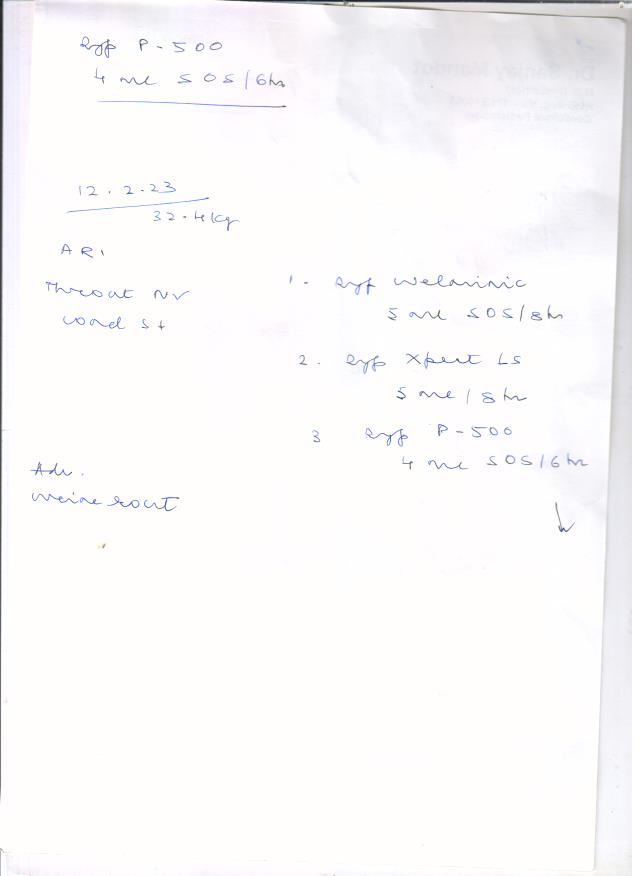 Syp P-500
4 ml SOS/6hr
12.2.23
32.4kg
ARI
Throat NV
cond S+
1. Syp Welminic
5 ml SOS/8hr
2. Syp Xpert LS
5 ml/8hr
3 Syp P-500
4 ml SOS/6hr
Adv.
Urine rout